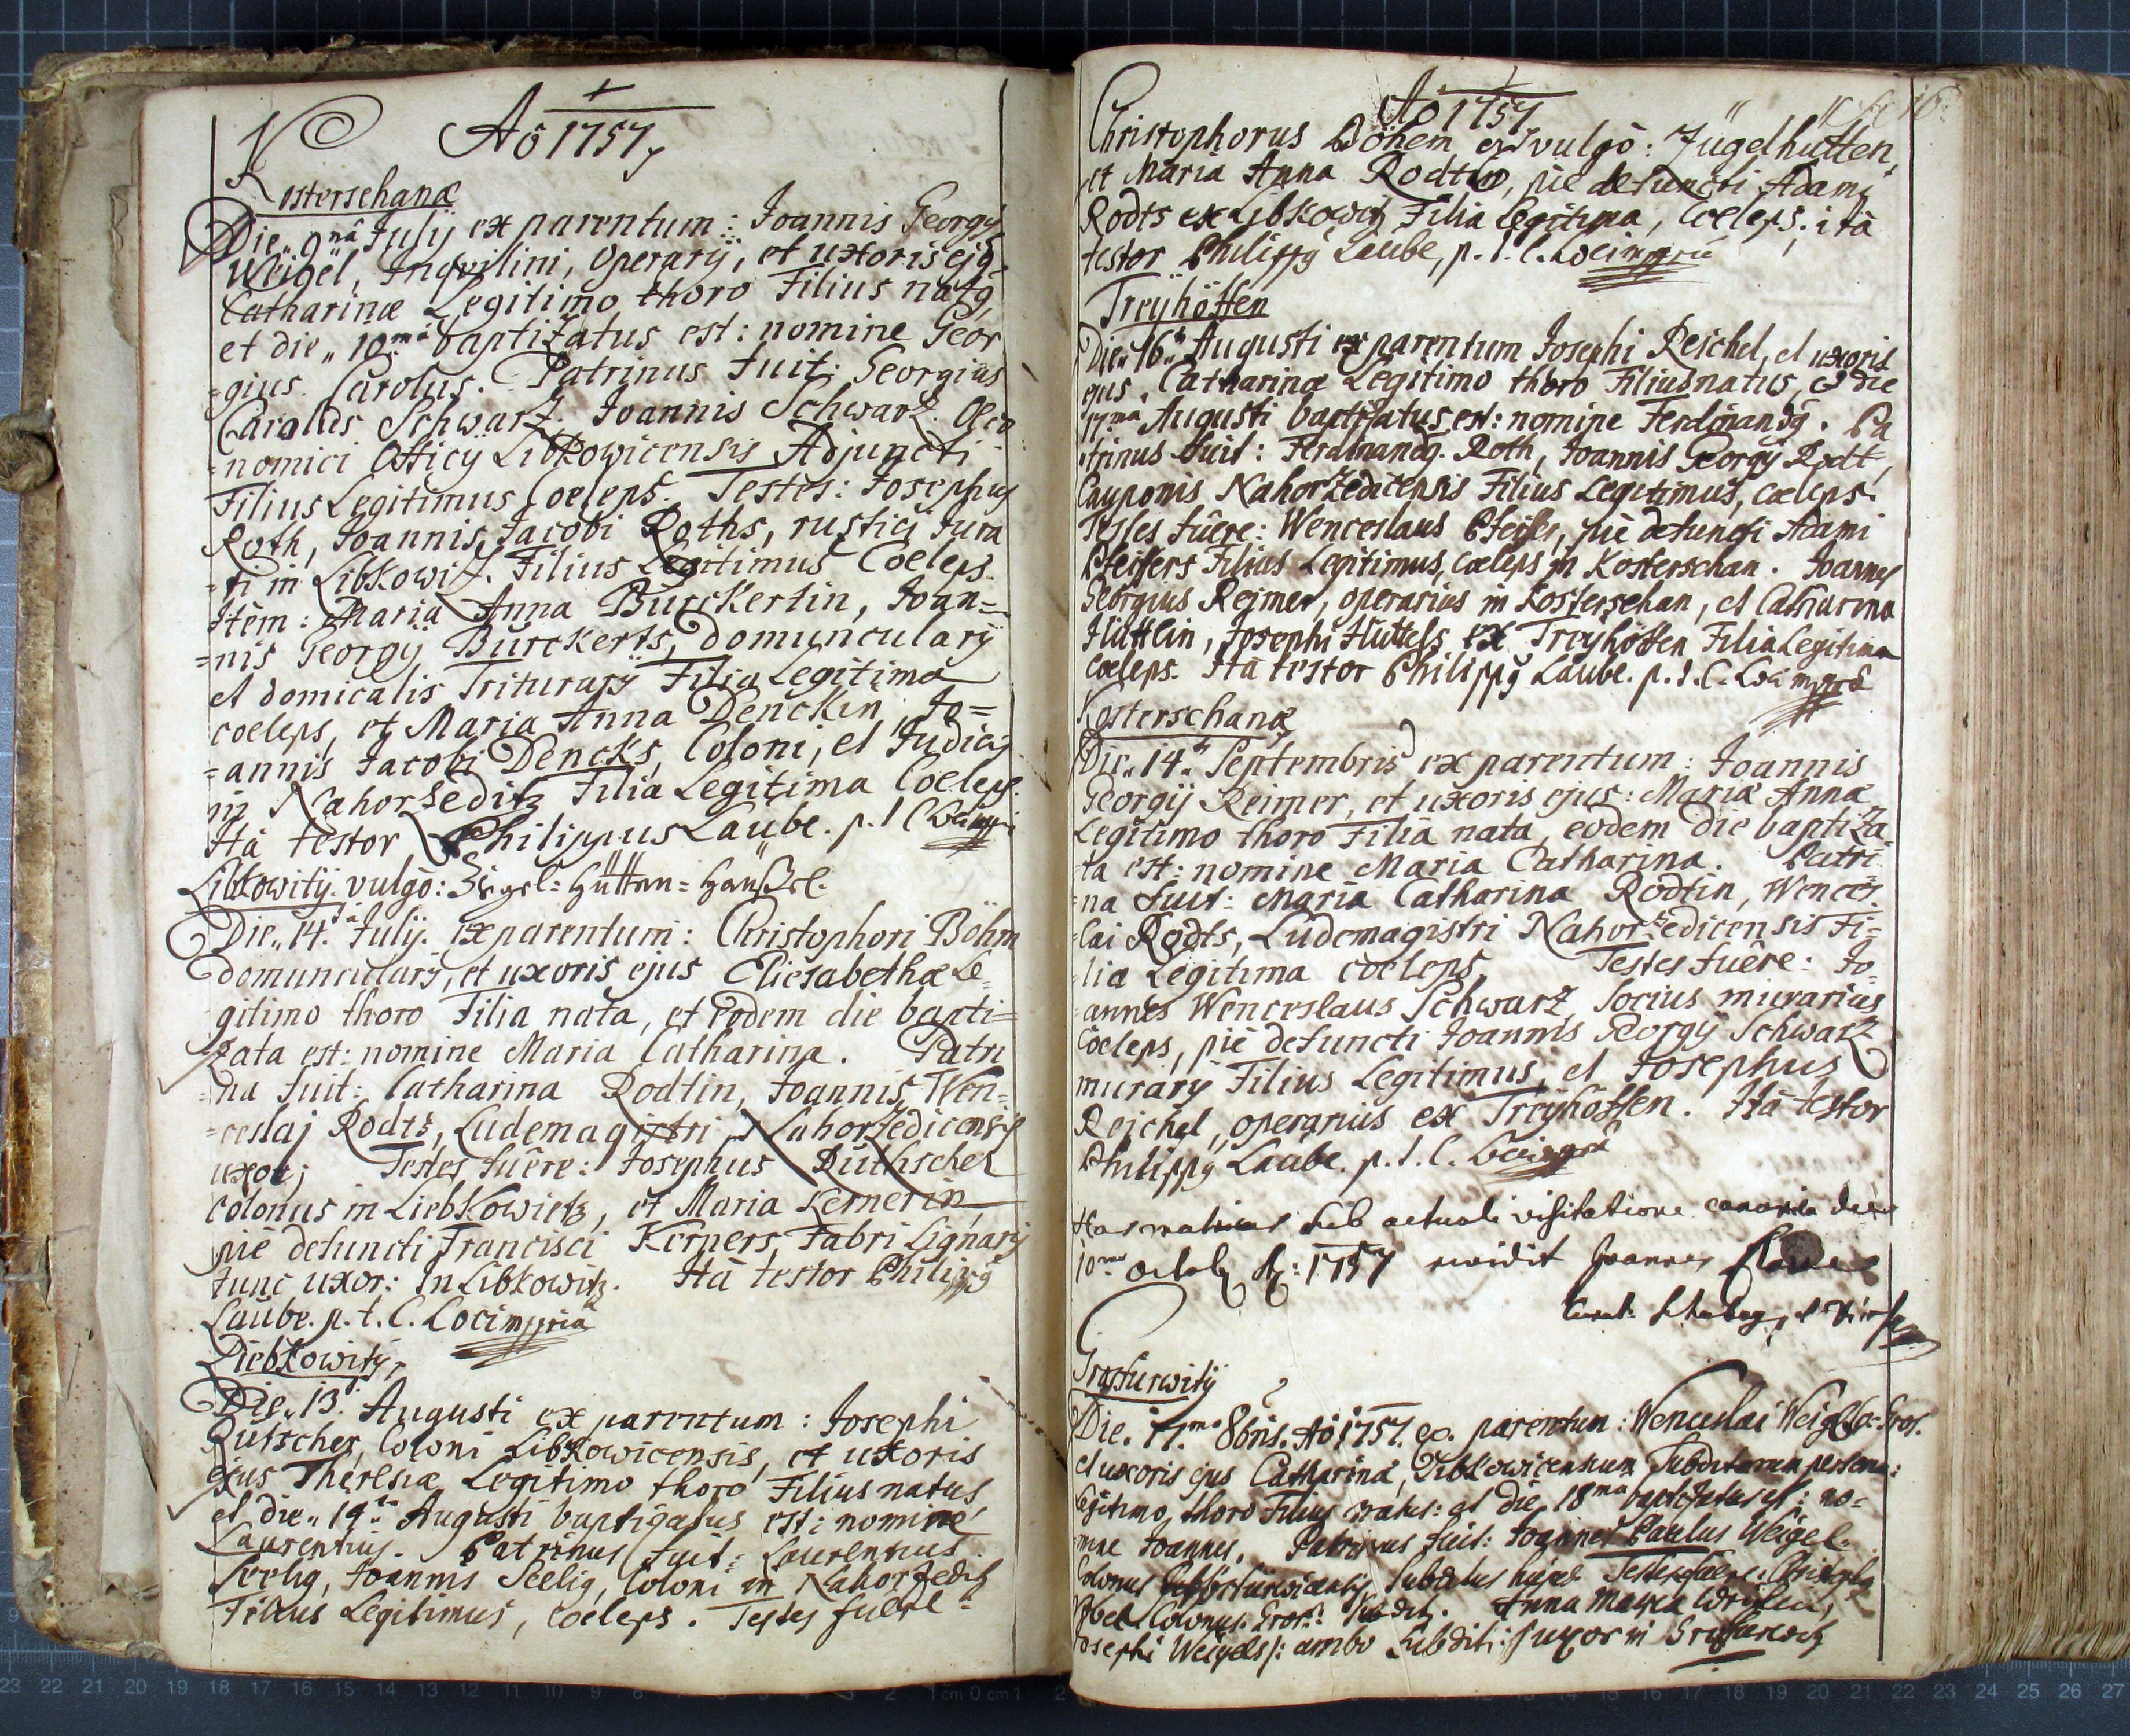 Aõ 1757
Kosterschanæ
Die „ 9nâ July ex parentum: Joannis Georgÿ
Weigel, Inquilini, Operarÿ, et uxoris ejꝰ
Catharinæ Legitimo thoro Filius natꝰ
et die „ 10mâ baptizatus est: nomine Geor
=gius Carolus. Patrinus fuit: Georgius
Carolus Schwarz. Joannis Schwarz Oeco
=nomici Officÿ Libkowicensis Adjuncti
Filius Legitimus Coelebs. Testes: Josephus
Roth, Joannis Jacobi Roths, rustici Jura
=ti in Libkowitz. Filius Legitimus Coeleps.
Item: Maria Anna Burckertin, Joan=
=nis Georgÿ Burckerts, domuncularÿ
et domicalis Triturarÿ Filia Legitima
coeleps, et Maria Anna Denckin, Jo=
=annis Jacobi Dencks, Coloni, et Judicis
in Nahorzeditz Filia Legitima Coeleps.
Ità testor Philippus Laube. p. t. C.
Libkowitÿ vulgò: Zigel=Hütten=Haußel.
Die „ 14tâ July. ex parentum: Christophori Böhm
domuncularÿ, et uxoris ejus Eliesabethæ Le=
gitimo thoro Filia nata, et eodem die bapti=
zata est: nomine Maria Catharina. Patri
=na fuit: Catharina Rodtin, Joannis Wen=
=ceslaj Rodts, Ludemagistri Nahorzedicensis
uxor; Testes fuêre: Josephus Rutscher
colonus in Liebkowietz, et Maria Kernerin,
piè defuncti Francisci Kerners, Fabri Lignarÿ
tunc uxor: in Libkowitz. Ità testor Philippꝰ
Laube. p. t. C. Loci mppria
Liebkowitÿ
Die „ 13. Augusti ex parentum: Josephi
Rutscher, Coloni Libkowicensis, et uxoris
ejus Theresiæ Legitimo thoro Filius natus,
et die „ 14tâ Augusti baptizatus est: nomine
Laurentius. Patrinus fuit: Laurentius
Seelig, Joannis Seelig, Coloni in Nahorzeditz
Filius Legitimus, coeleps. Testes fuêre:
Aõ 1757
Christophorus Böhem ex vulgò: Zügelhütten,
et Maria Anna Rodtin, piè defuncti Adami
Rodts ex Libkowitz Filia Legitima, Coeleps; ità
testor Philippꝰ Laube, p. t. C. Loci mppriâ
Treyhöffen
Die „ 16. Augusti ex parentum Josephi Reichel, et uxoris
ejus, Catharinæ Legitimo thoro Filius natus, et die
17mâ Augusti baptizatus est: nomine Ferdinandꝰ. Pa
=trinus fuit: Ferdinandꝰ Roth, Joannis Georgÿ Rodt,
Cauponis Nahorzedicensis Filius Legitimus, cœleps.
Testes fuêre: Wenceslaus Pfeiffer, piè defuncti Adami
Pfeiffers Filius Legitimus, cœleps in Kosterschan. Joannes
Georgius Reimer, operarius in Kosterschan, et Catharina
Hüttlin, Josephi Hüttels ex Treyhöffen Filia Legitima
cœleps. Ità testor Philippꝰ Laube. p. t. C. Loci mppriâ
Kosterschanæ
Die „ 14. Septembris ex parentum: Joannis
Georgÿ Reimer, et uxoris ejus: Mariæ Annæ
Legitimo thoro Filia nata, eodem die baptiza
=ta est: nomine Maria Catharina. Patri
=na fuit: Maria Catharina Rodtin, Wences
=lai Rodts, Ludemagistri Nahorzedicensis Fi=
=lia Legitima coeleps. Testes fuêre: Jo
=annes Wenceslaus Schwarz, Socius murarius
Cœleps, piè defuncti Joannis Georgÿ Schwarz
murarÿ Filius Legitimus, et Josephus
Reichel, operarius ex Treyhöffen. Ità testor
Philippꝰ Laube. p. t. C. Loci mppriâ
Has matricas sub actuali visitatione canonica die
10ma 1757 revidit Joannes
Die. 17.ma 8bris. Aõ 1757. ex. parentum: Wenceslai Weigl
et uxoris ejus Catharinæ, Libkowicensium Subditarum person:
Legitimo thoro Filius natus: et die 18ma baptizatus est: no=
mine Joannes. Patrinus fuit: Joannes Paulus Weigel
Colonus Subditus hujas Testes fuêre:
Colonus Subdit. Anna Maria
Josephi Weigels /: ambo Subditi :/ uxor in